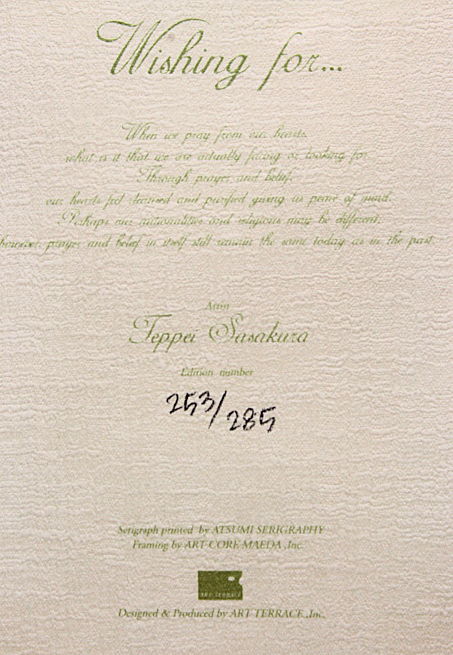 Wishing for...
When we pray from our hearts,
what is it that we are actually facing or looking for.
Through prayer and belief,
our hearts feel cleansed and purified giving us peace of mind.
Perhaps our nationalities and religions may be different,
however, prayer and belief in itself still remain the same today as in the past.
Artist
Teppei Sasakura
Edition number
253/285
Serigraph printed by ATSUMI SERIGRAPHY
Framing by ART-CORE MAEDA ,Inc.
ART TERRACE
Designed & Produced by ART TERRACE ,Inc.